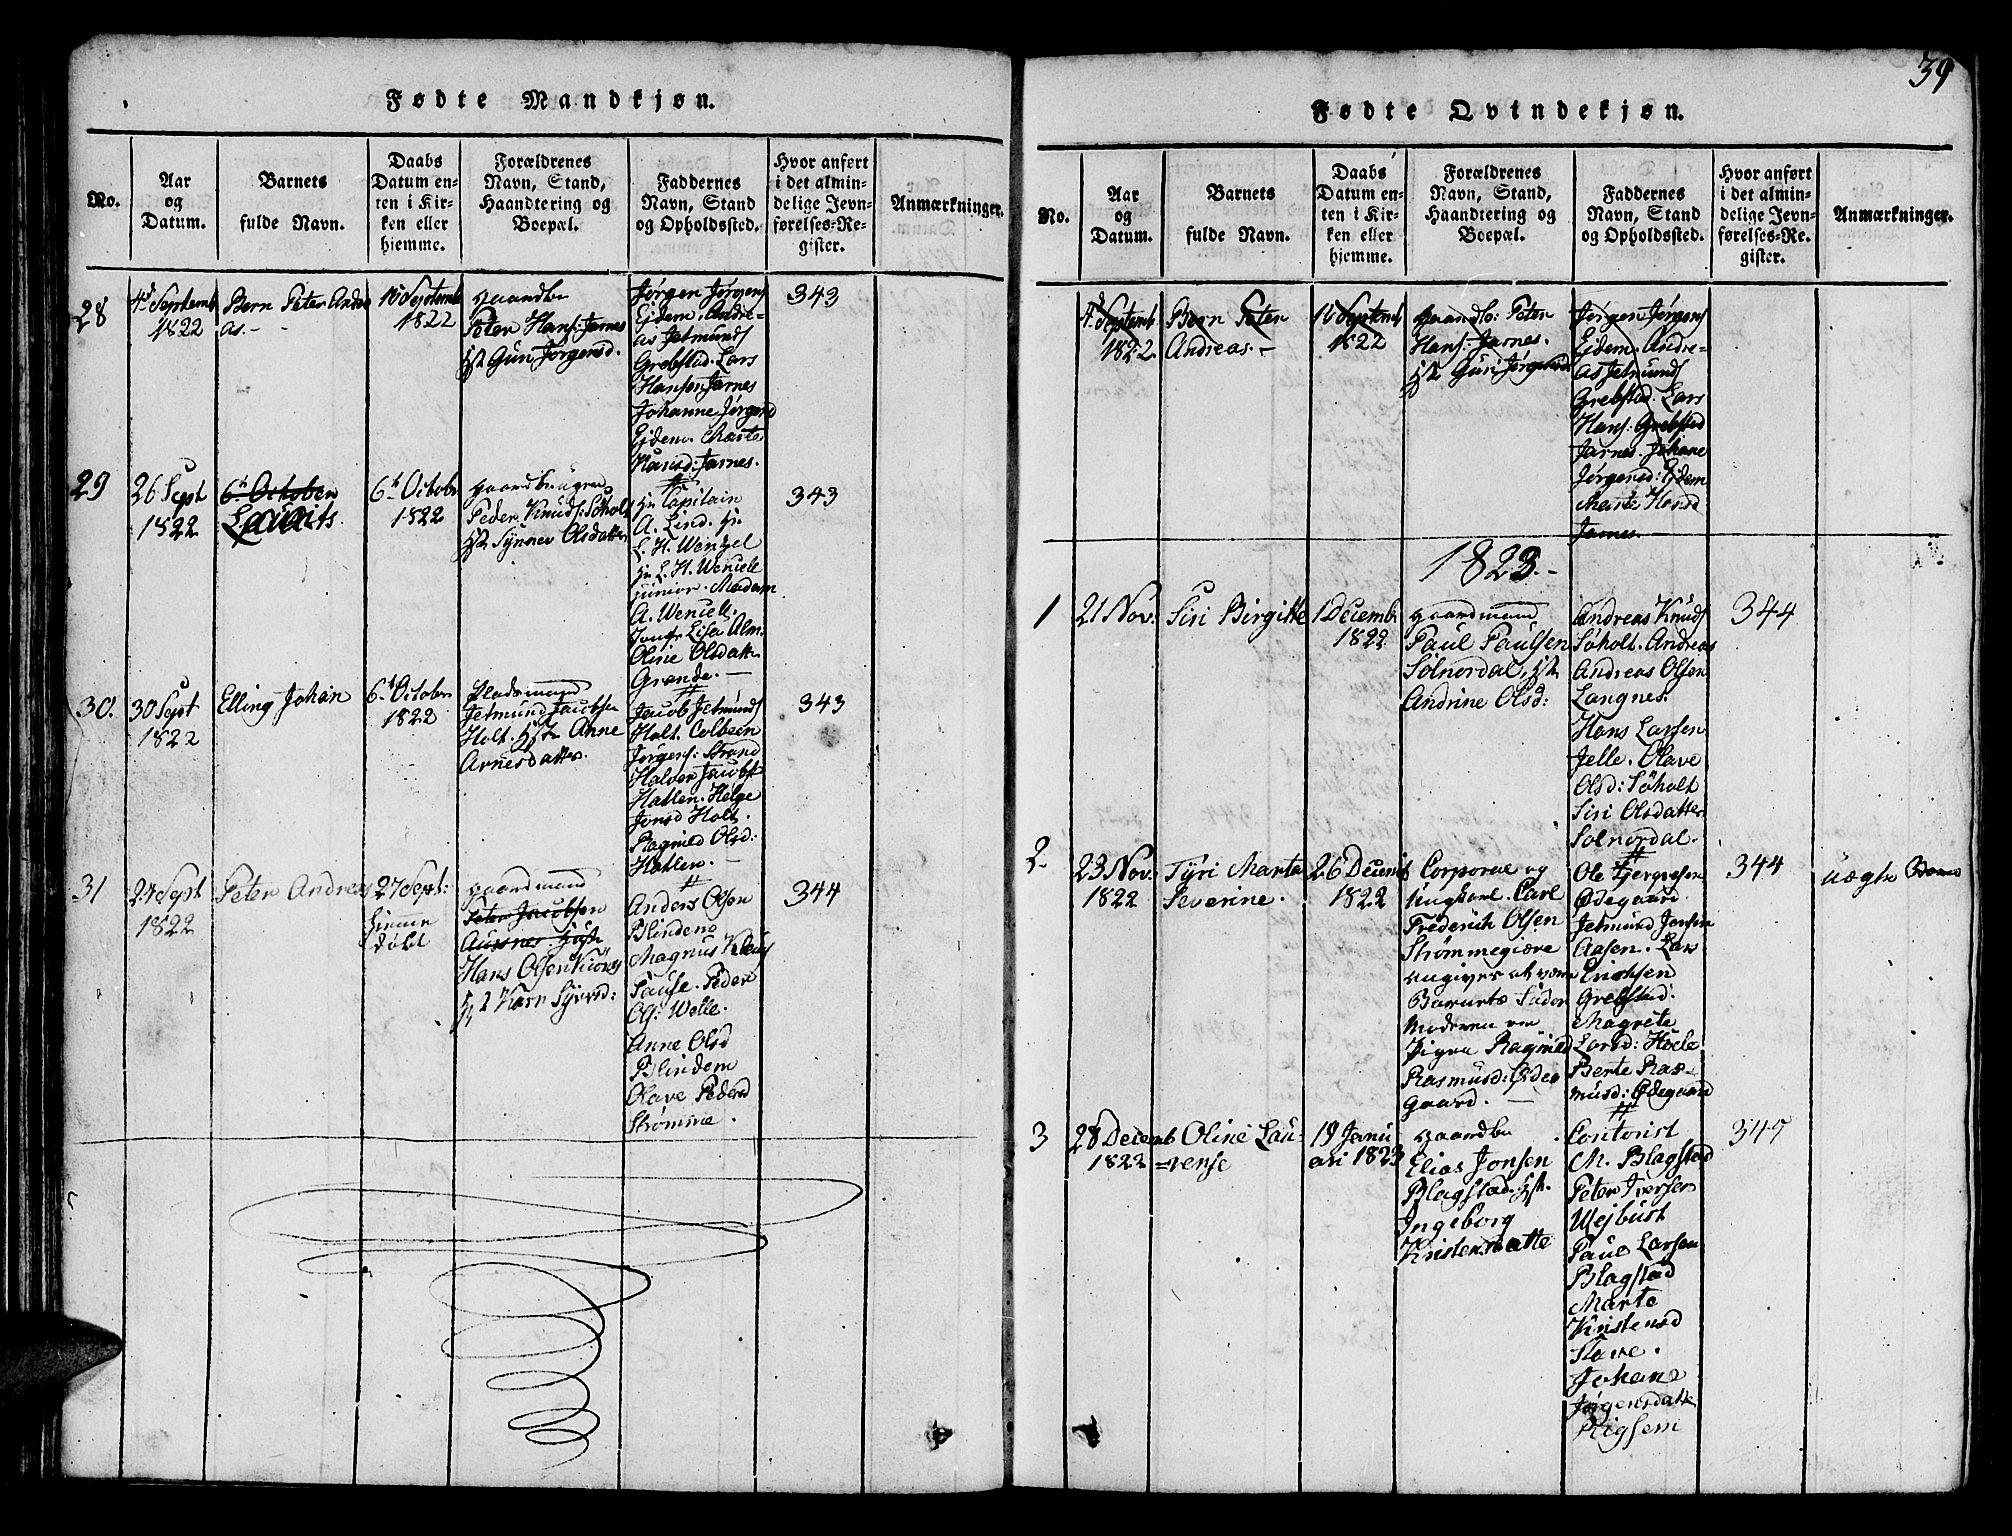 39
Fødte Mandkjøn.
No.
Aar
og
Datum.
Barnets
fulde Navn.
Daabs
Datum en-
ten i Kir-
ken eller
hjemme.
Forældrenes
Navn, Stand,
Haandtering og
Boepæl.
Faddernes
Navn, Stand
og Opholdssted.
Hvor anført
i det almin-
delige Jevn-
førelses-Re-
gister.
Anmærkninger.
28
4de Septemb
1822
Bern Peter Andre
as.-
15 Septemb
1822
Gaardbr
Peter Hans: Jarnes
Hst Guri Jørgensd.
Jørgen Jørgens
Eidem, Andre=
as Jetmunds
Grebstad. Lars
Hansen Jarnes
Johanne Jørgensd
Eidem. Marte
Hansd: Jarnes.
343
29
26 Sept
1822
6te October
Laurits.
6te Octobr
1822
Gaardbrugeren
Peder Knuds: Søholt
Hst Synnev Olsdatter
Hr Capitain
A. Lind. Hr
L. H. Wenzel
Hr L. H. Wencell
junior. Madam
A. Wencell.
Jomfr Lisa Alm.
Oline Olsdatter
Grande.
343
30.
30 Sept
1822
Elling Johan
6te October
1822
Pladsmand
Jetmund Jacobsen
Holt. Hst Anne
Arnesdatter.
Jacob Jetmunds
Holt. Colbeen
Jørgens: Strand
Haldor Jacobs
Hatlen. Helge
Jonsd Holt.
Ragnild Olsd:
Hatlen.
343
31
24 Sept
1822
Peter Andreas
27 Sept:
hiemme
døbt
Gaardmand
Peter Jacobsen
Aursnes Hust
Hans Olsen
Hst Karn Syvers:
Anders Olsen
Blindem
Magnus
Peder
Ols: Welle.
Anne Olsd
Blindem
Olave Pedersd
Strømme.
344
Fødte Qvindekjøn.
No.
Aar
og
Datum.
Barnets
fulde Navn.
Daabs
Datum en-
ten i Kir-
ken eller
hjemme.
Forældrenes
Navn, Stand,
Haandtering og
Boepæl.
Faddernes
Navn, Stand
og Opholdssted.
Hvor anført
i det almin-
delige Jevn-
førelses-Re-
gister.
Anmærkninger.
4de Septemb
1822.
Bern Peter
Andreas.-
15 Septemb
1822
Gaardbr: Peter
Hans: Jarnes.
Hst Guri Jørgensd
Jørgen Jørgens
Eidem. Andre=
as Jetmunds
Grebstad. Lars
Hans: Grebstad
Jarnes. Johane
Jørgensd: Eidem
Marte Hansd
Jarnes
1823.-
1
21 Nov.
Siri Birgitte
1 Decembr
1822
Gaardmand
Paul Paulsen
Solnordal, Hst
Andrine Olsd:
Andreas Knuds
Søholt. Andreas
Andreas Olsen
Langnes.
Hans Larsen
Jelle. Olave
Olsd: Søholt
Siri Olsdatter
Solnordal.
344
2
23 Nov.
1822
Tyri Marta
Severine.
26 Decemb
1822
Corporal og
Ungkarl. Carl
Frederich Olsen
Strømmegiære
angives at være
Barnets Fader
Moderen er
Pigen Ragnild
Rasmusd: Ødee
gaard.
Ole Gjergesen
Ødegaard.
Jetmund Jensen
Aasen. Lars
Erichsen
Grebstad.
Magrete
Larsd: Hoele
Berte Ras=
musd: Ødegaard
344
uægte Barn
3
28 Decemb
1822
Oline Lau=
=rense
19 Janu
ari 1823
Gaardbr
Elias Jonsen
Blagstad. Hst.
Ingeborg
Kristensdatte
Contorist
M. Blagstad
Peter Iversen
Wejbust
Paul Larsen
Blagstad
Marte
Kristensd
Slave.
Johane
Jørgensdatt
Rigsem
345